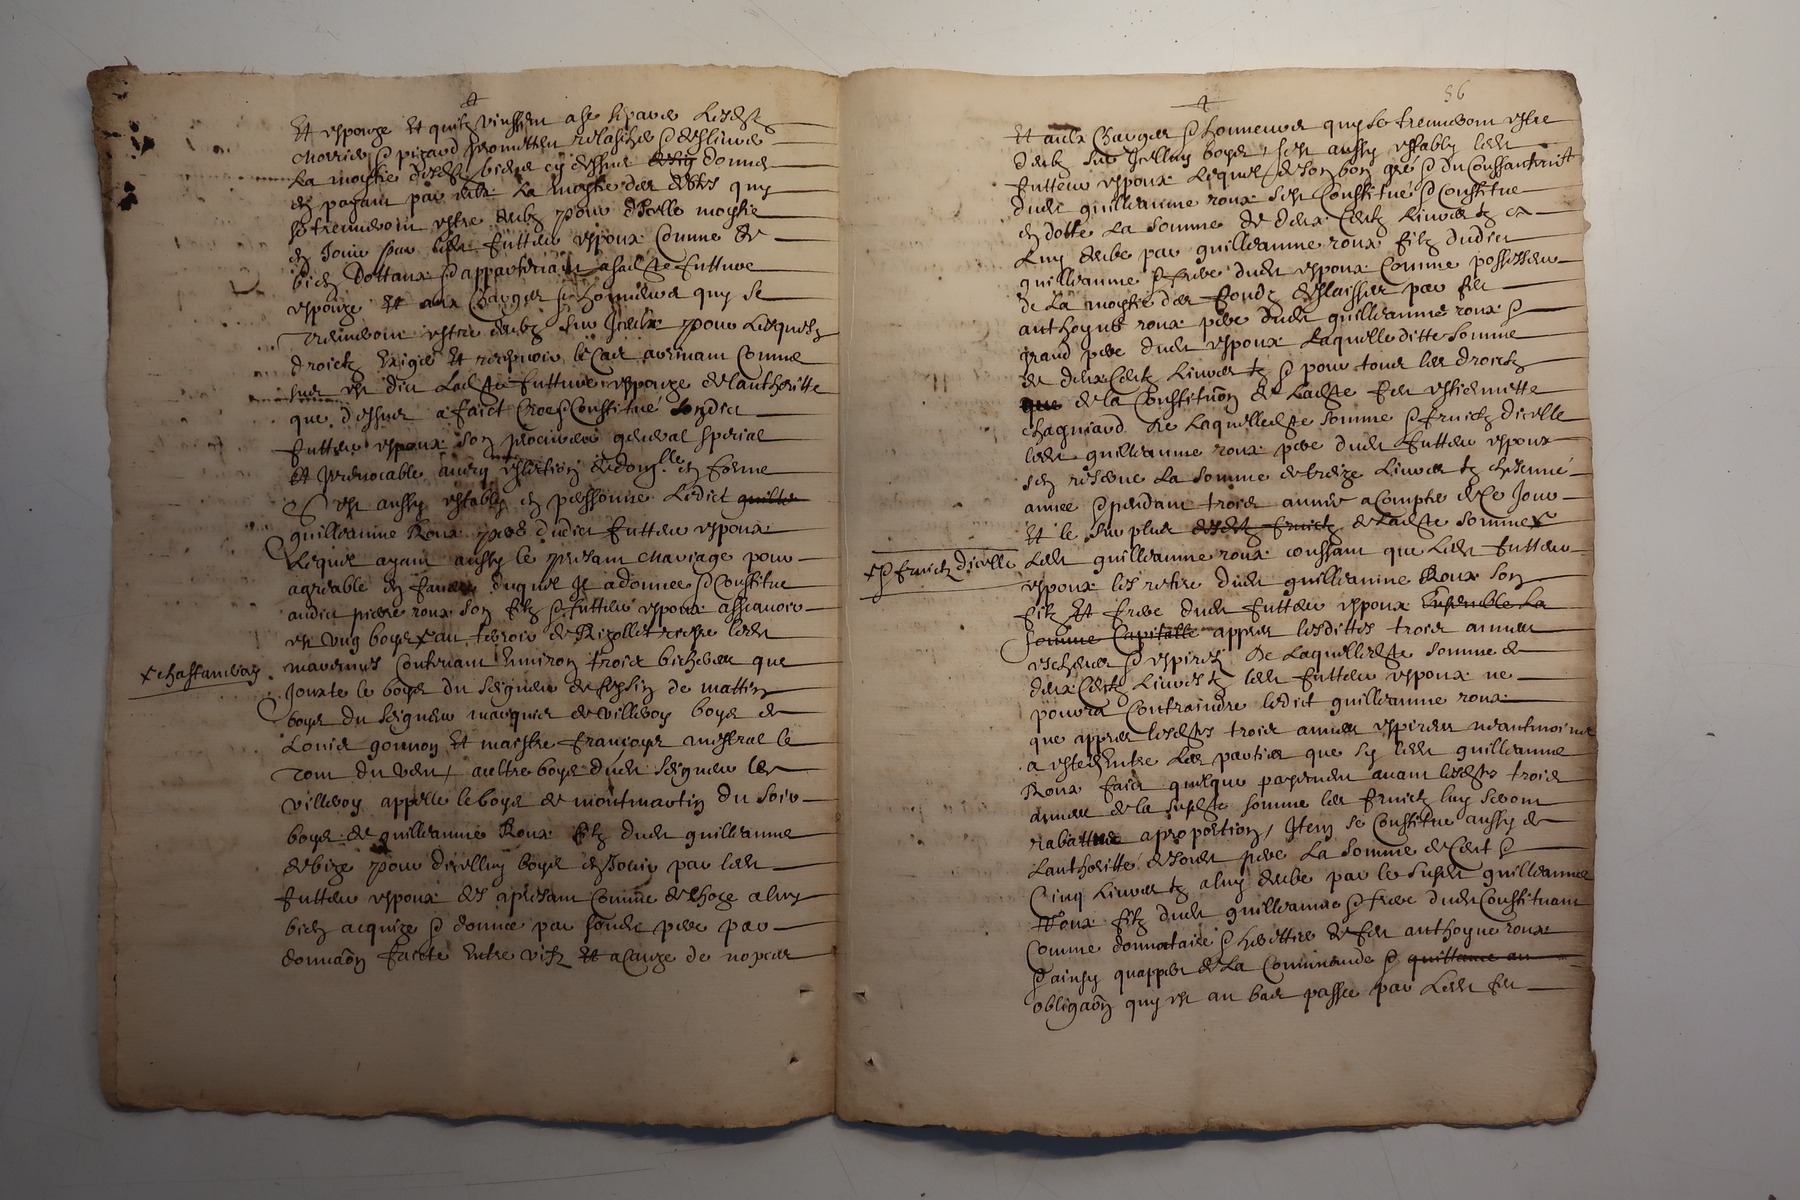 Et espouze Et quilz vinssent a se separer lesdictz
morrier & picard promettent relascher & deslivrer
La moytie desdictz biens cy dessus donnes
en payant par iceux La moytie des debtes quy
se treuveront estre deubz pour d'icelle moytie
en Jouir par ledit futteur espoux Comme de
bien dottaux & appartenant a ladicte future
espouze Et aux Charges & honneurs quy se
treuveront estre deubz sur Iceux pour lesquelz
droictz Exiger Et recepvoir le Cas advenant Comme
sus est dict Ladicte future espouze de lauthoritte
que dessus a faict Cree & Constitué Sondict
futteur espoux son procureur general special
Et Irrevocable avecq eslection de domlle en forme
Et est aussy estably en personne Ledict
guilleaume Roux pere dudict futteur espoux
Lequel ayant aussy le presant mariage pour
agreable en faveur duquel Il a donne & Constitue
audict pierre roux son filz & futteur espoux assçavoir
est ung boys x au terroir de Rigollet riesre ledit
x chastanuroy
Contenant Environ trois bicherees que
Jouxte le boys du Seigneur de de mattin
boys du Seigneur marquis de villeroy boys de
Louis gonnon Et maistre françoys mistral le
tout du vent / aultre boys dudit Seigneur de
villeroy appelle le boys de montmartin du soir
boys de guilleaume Roux filz dudit guilleaume
de bize pour d'icelluy boys en Jouir par ledit
futteur espoux des a presant Comme de choze a luy
bien acquize & donnee par sondit pere par
donnaōn faicte Entre vifz Et a Cauze de nopces
56
Et aulx Charges & honneurs quy se treuveront estre
deubz sur Icelluy boys / s'est aussy estably ledit
futteur espoux Lequel de son bon gré & du Conssantemt
dudit guilleaume roux s'est Constitué & Constitue
en dotte La Somme de deux Centz Livres tz a
Luy deube par guilleaume roux filz dudict
guilleaume & frere dudit espoux Comme possesseur
de La moytie des fondz deslaisses par feu
anthoyne roux pere dudit guilleaume roux &
grand pere dudit espoux Laquelleditte Somme
de deux Centz Livres tz & pour tous les droictz
de la Constitutiōn de Ladicte feu estiennette
chagniard de Laquelledicte Somme & fruictz d'icelle
ledit guilleaume roux pere dudit futteur espoux
s'en reserve La Somme de treize Livres tz chescune
annee & pendant trois annees a Compter de Ce Jour
Et le surplus desdictz fruictz de Ladicte Somme x
x & fruictz d'icelle
Ledit guilleaume roux conssant que Ledit futteur
espoux les retire dudit guilleaume Roux son
filz Et frere dudit futteur espoux Ensemble La
Somme Capitalle appres lesdittes trois annees
escheues & expirees de Laquelledicte Somme de
deux Centz Livres tz ledit futteur espoux ne
pourra Contraindre ledict guilleaume roux
que appres lesdictes trois annees expirees neantmoins
a esté Entre Les parties que sy ledit guilleaume
Roux faict quelque payement avant lesdictes trois
annees de la susdicte somme les fruictz luy seront
rabattus a proportion / Item se Constitue aussy de
Lauthoritté de sondit pere La Somme de Cent &
Cinq Livres tz a luy deube par le susdit guilleaume
Roux filz dudit guilleaume & frere dudit Constituant
Comme donnataire & herittier de feu anthoyne roux
& ainsy quappert de La Commande & quittance au
obligaōn quy est au bas passee par Ledit feu